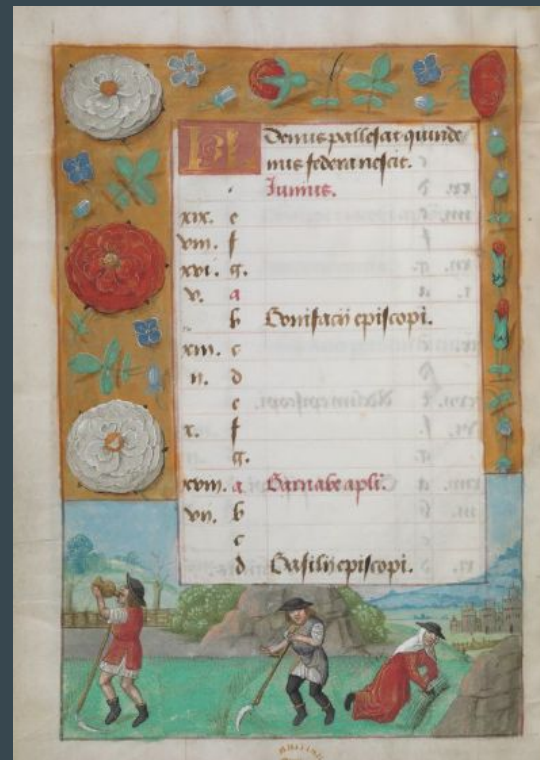 KL Denus pallescat quinde
nus federa nescit.
Iunius.
xix. e
viii. f
xvi. g.
v. a
b Bonifacii episcopi.
xiii. c
ii. d
e
x. f
g.
xviii. a Barnabe apli.
vii. b
c
d Basilii episcopi.